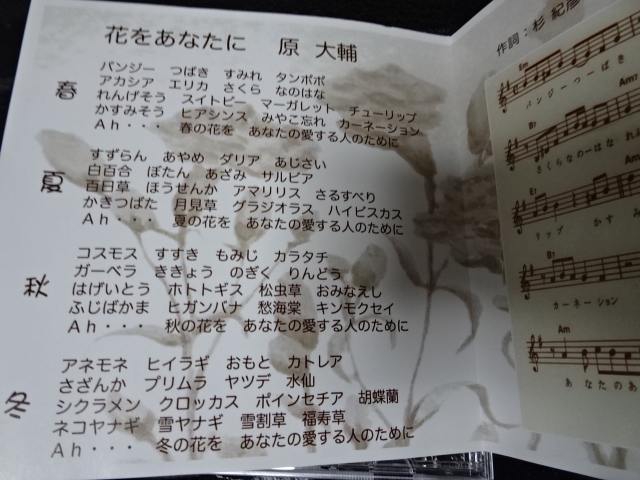 花をあなたに 原 大輔
春
パンジー つばき すみれ タンポポ
アカシア エリカ さくら なのはな
れんげそう スイトピー マーガレット チューリップ
かすみそう ヒアシンス みやこ忘れ カーネーション
Ah・・・ 春の花を あなたの愛する人のために
夏
すずらん あやめ ダリア あじさい
白百合 ぼたん あざみ サルビア
百日草 ほうせんか アマリリス さるすべり
かきつばた 月見草 グラジオラス ハイビスカス
Ah・・・ 夏の花を あなたの愛する人のために
秋
コスモス すすき もみじ カラタチ
ガーベラ ききょう のぎく りんどう
はげいとう ホトトギス 松虫草 おみなえし
ふじばかま ヒガンバナ 愁海棠 キンモクセイ
Ah・・・ 秋の花を あなたの愛する人のために
冬
アネモネ ヒイラギ おもと カトレア
さざんか プリムラ ヤツデ 水仙
シクラメン クロッカス ポインセチア 胡蝶蘭
ネコヤナギ 雪ヤナギ 雪割草 福寿草
Ah・・・ 冬の花を あなたの愛する人のために
作詞：杉 紀彦
Em
パンジーつーばき
B7 Am
さくらなのーはな れ
Am
リップ かすみ
B7
カーネーション
Am
あなたのあ